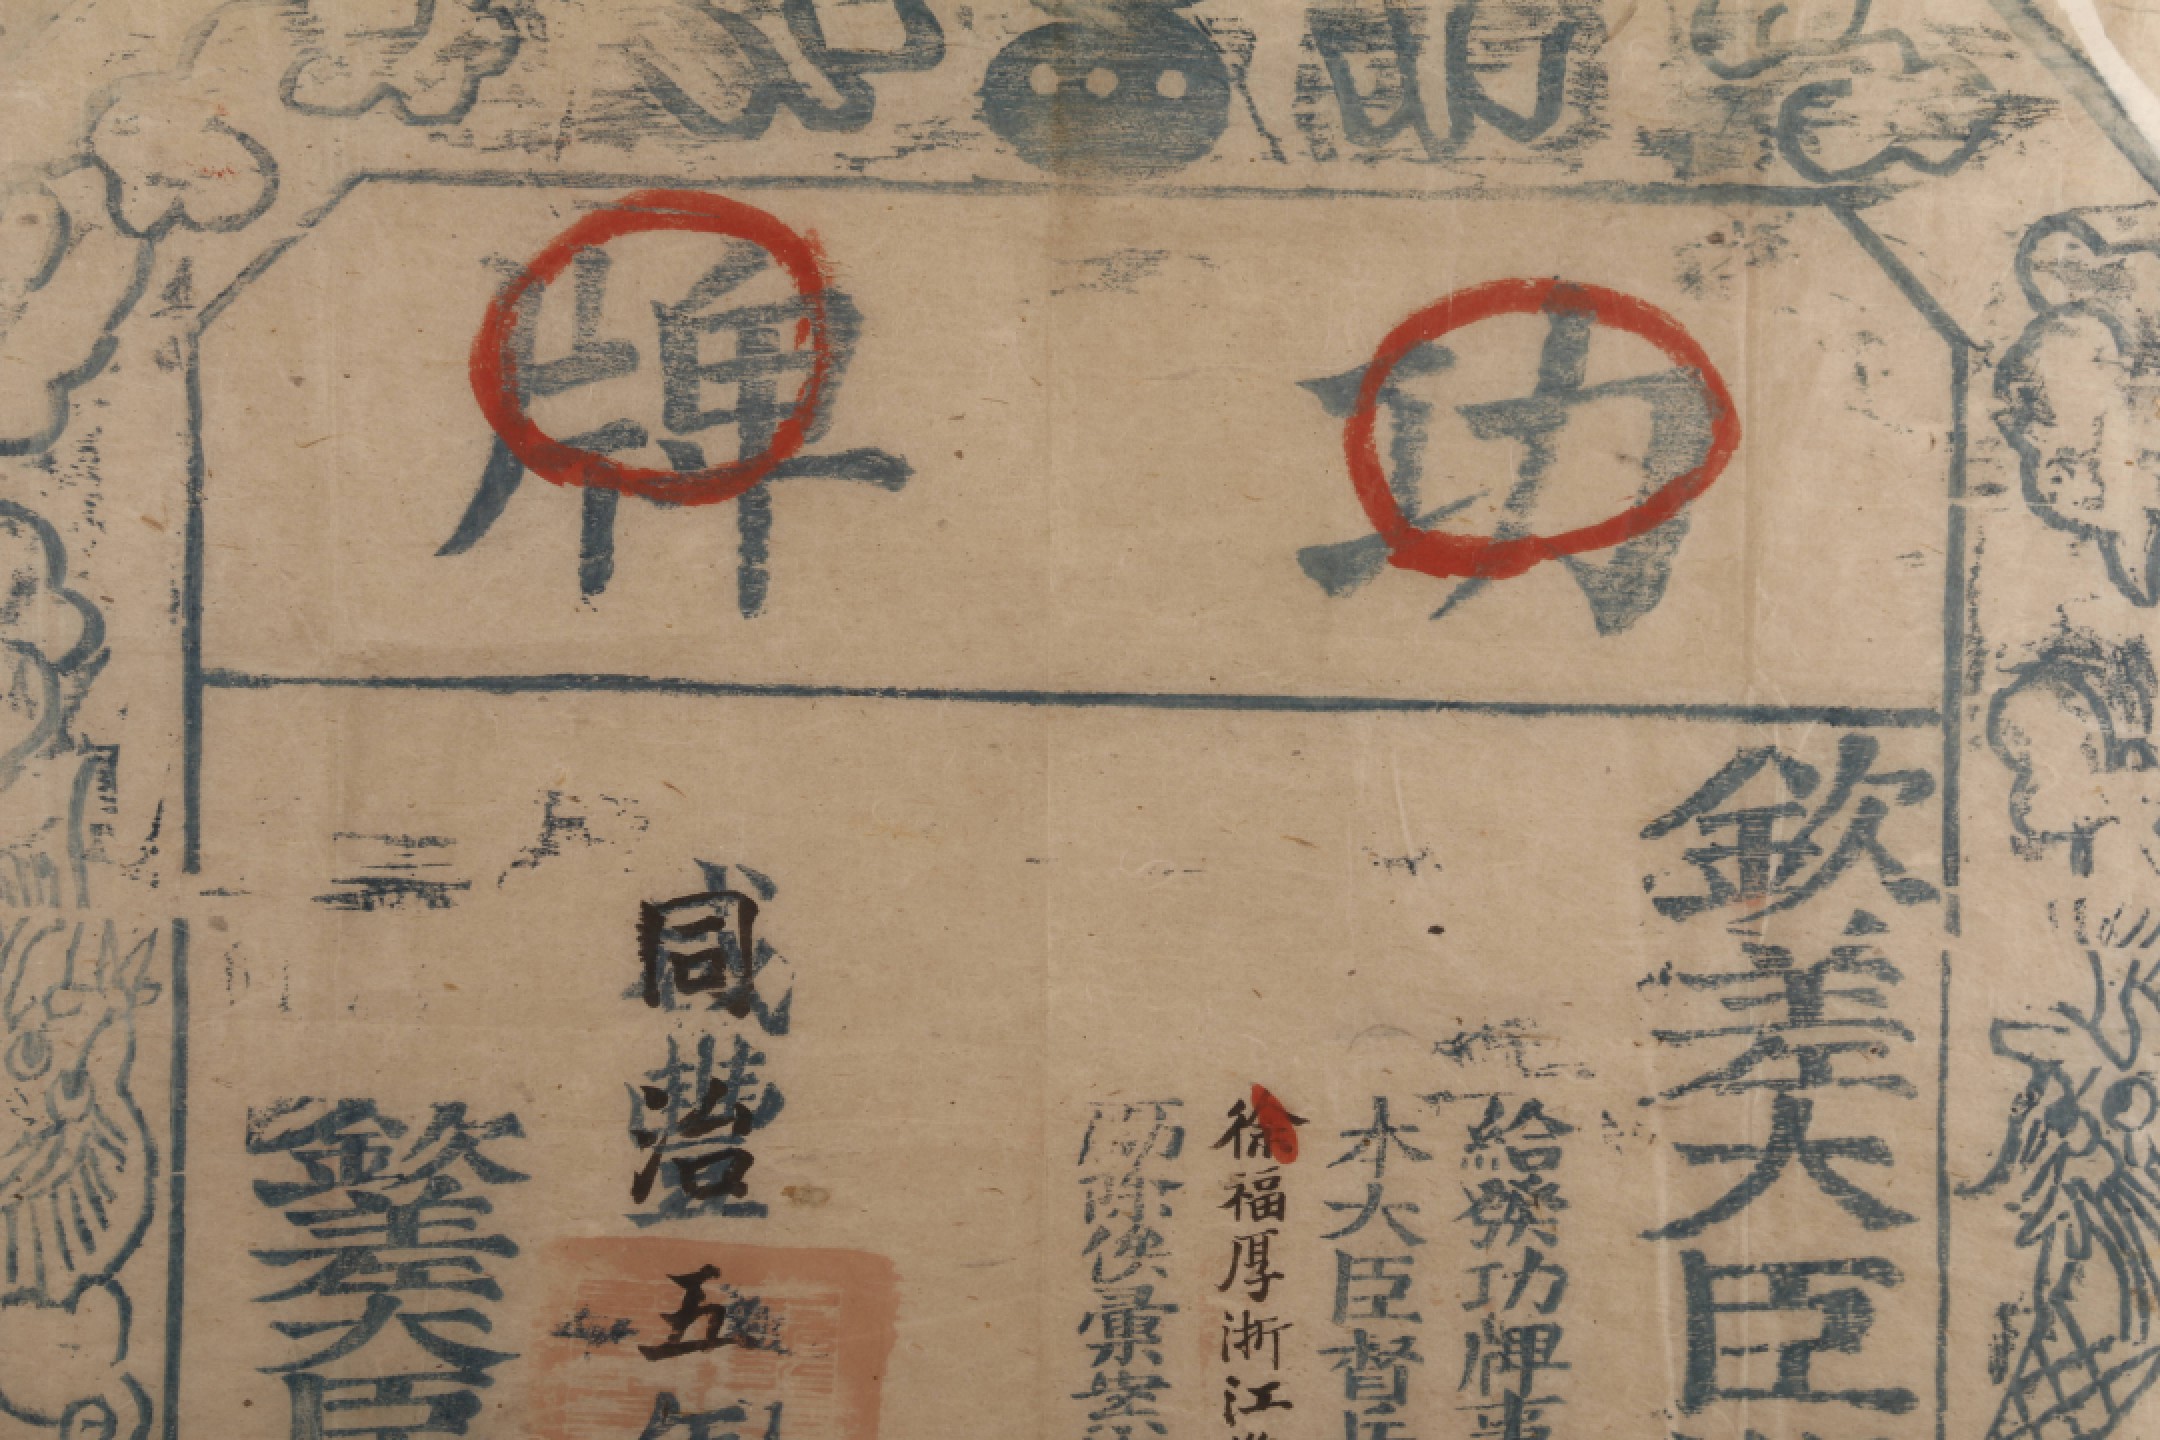 功牌
欽差大臣
給發功牌事
本大臣督兵
徐福厚浙江
除俟彙案
同治五年
咸豐
欽差大臣